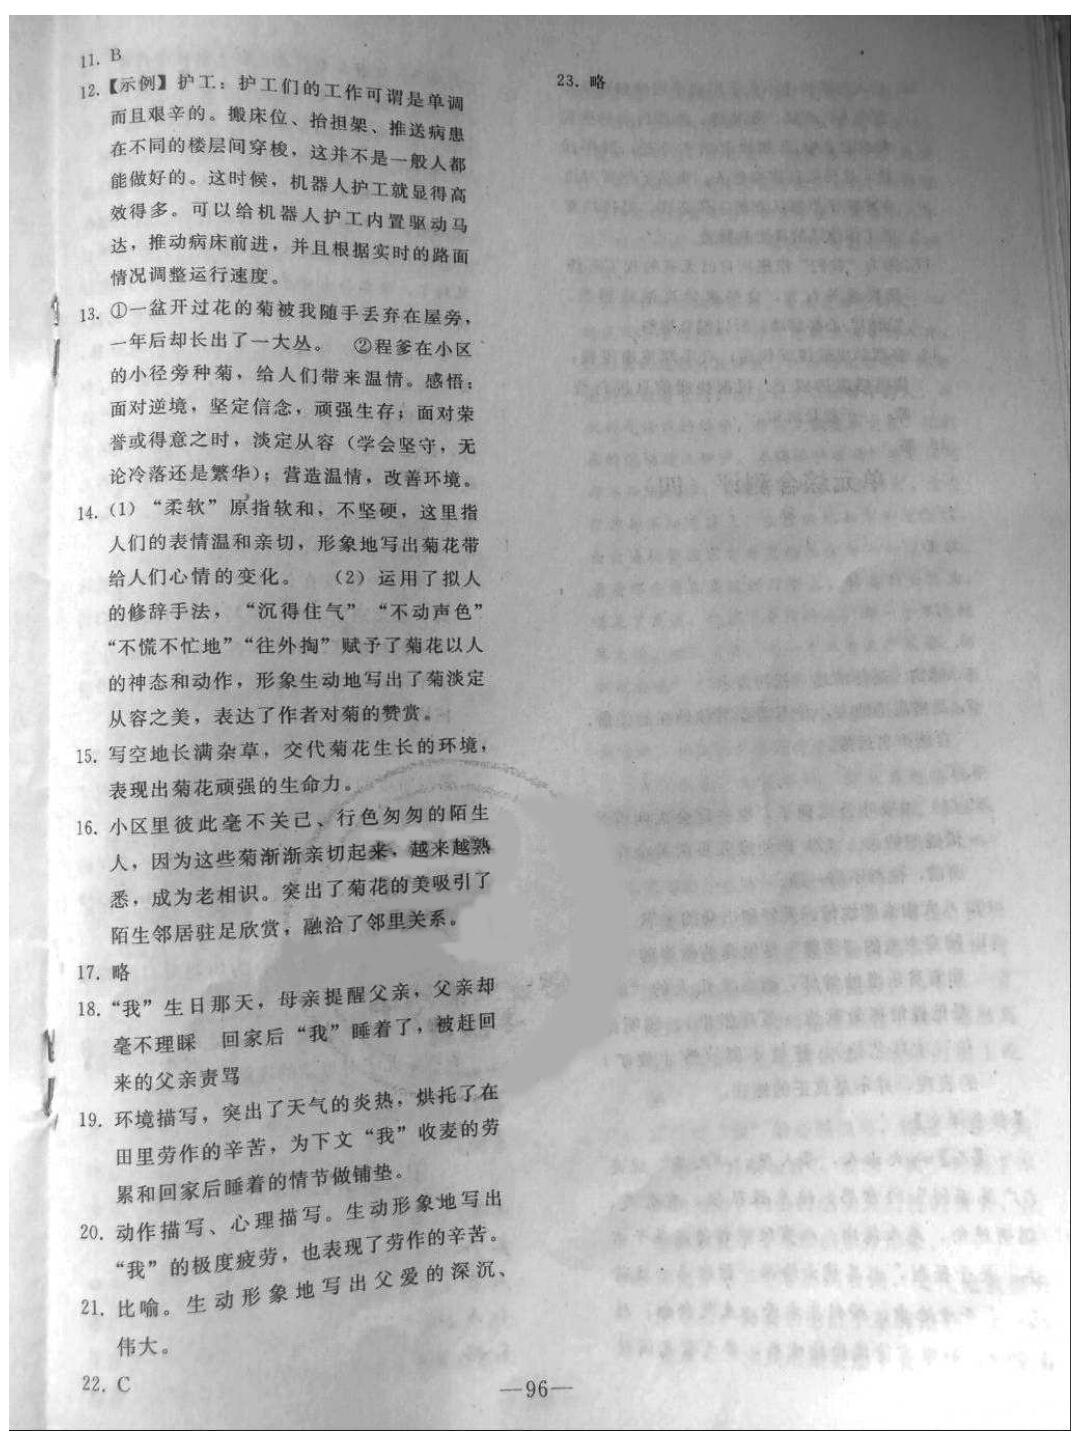 11. B
12.【示例】护工：护工们的工作可谓是单调
而且艰辛的。搬床位、抬担架、推送病患
在不同的楼层间穿梭，这并不是一般人都
能做好的。这时候，机器人护工就显得高
效得多。可以给机器人护工内置驱动马
达，推动病床前进，并且根据实时的路面
情况调整运行速度。
13. ①一盆开过花的菊被我随手丢弃在屋旁，
一年后却长出了一大丛。 ②程爹在小区
的小径旁种菊，给人们带来温情。感悟：
面对逆境，坚定信念，顽强生存；面对荣
誉或得意之时，淡定从容（学会坚守，无
论冷落还是繁华）；营造温情，改善环境。
14. (1)“柔软”原指软和，不坚硬，这里指
人们的表情温和亲切，形象地写出菊花带
给人们心情的变化。 （2）运用了拟人
的修辞手法，“沉得住气”“不动声色”
“不慌不忙地”“往外掏”赋予了菊花以人
的神态和动作，形象生动地写出了菊淡定
从容之美，表达了作者对菊的赞赏。
15. 写空地长满杂草，交代菊花生长的环境，
表现出菊花顽强的生命力。
16. 小区里彼此毫不关己、行色匆匆的陌生
人，因为这些菊渐渐亲切起来，越来越熟
悉，成为老相识。突出了菊花的美吸引了
陌生邻居驻足欣赏，融洽了邻里关系。
17. 略
18.“我”生日那天，母亲提醒父亲，父亲却
毫不理睬 回家后“我”睡着了，被赶回
来的父亲责骂
19. 环境描写，突出了天气的炎热，烘托了在
田里劳作的辛苦，为下文“我”收麦的劳
累和回家后睡着的情节做铺垫。
20. 动作描写、心理描写。生动形象地写出
“我”的极度疲劳，也表现了劳作的辛苦。
21. 比喻。生动形象地写出父爱的深沉、
伟大。
22. C
23. 略
—96—